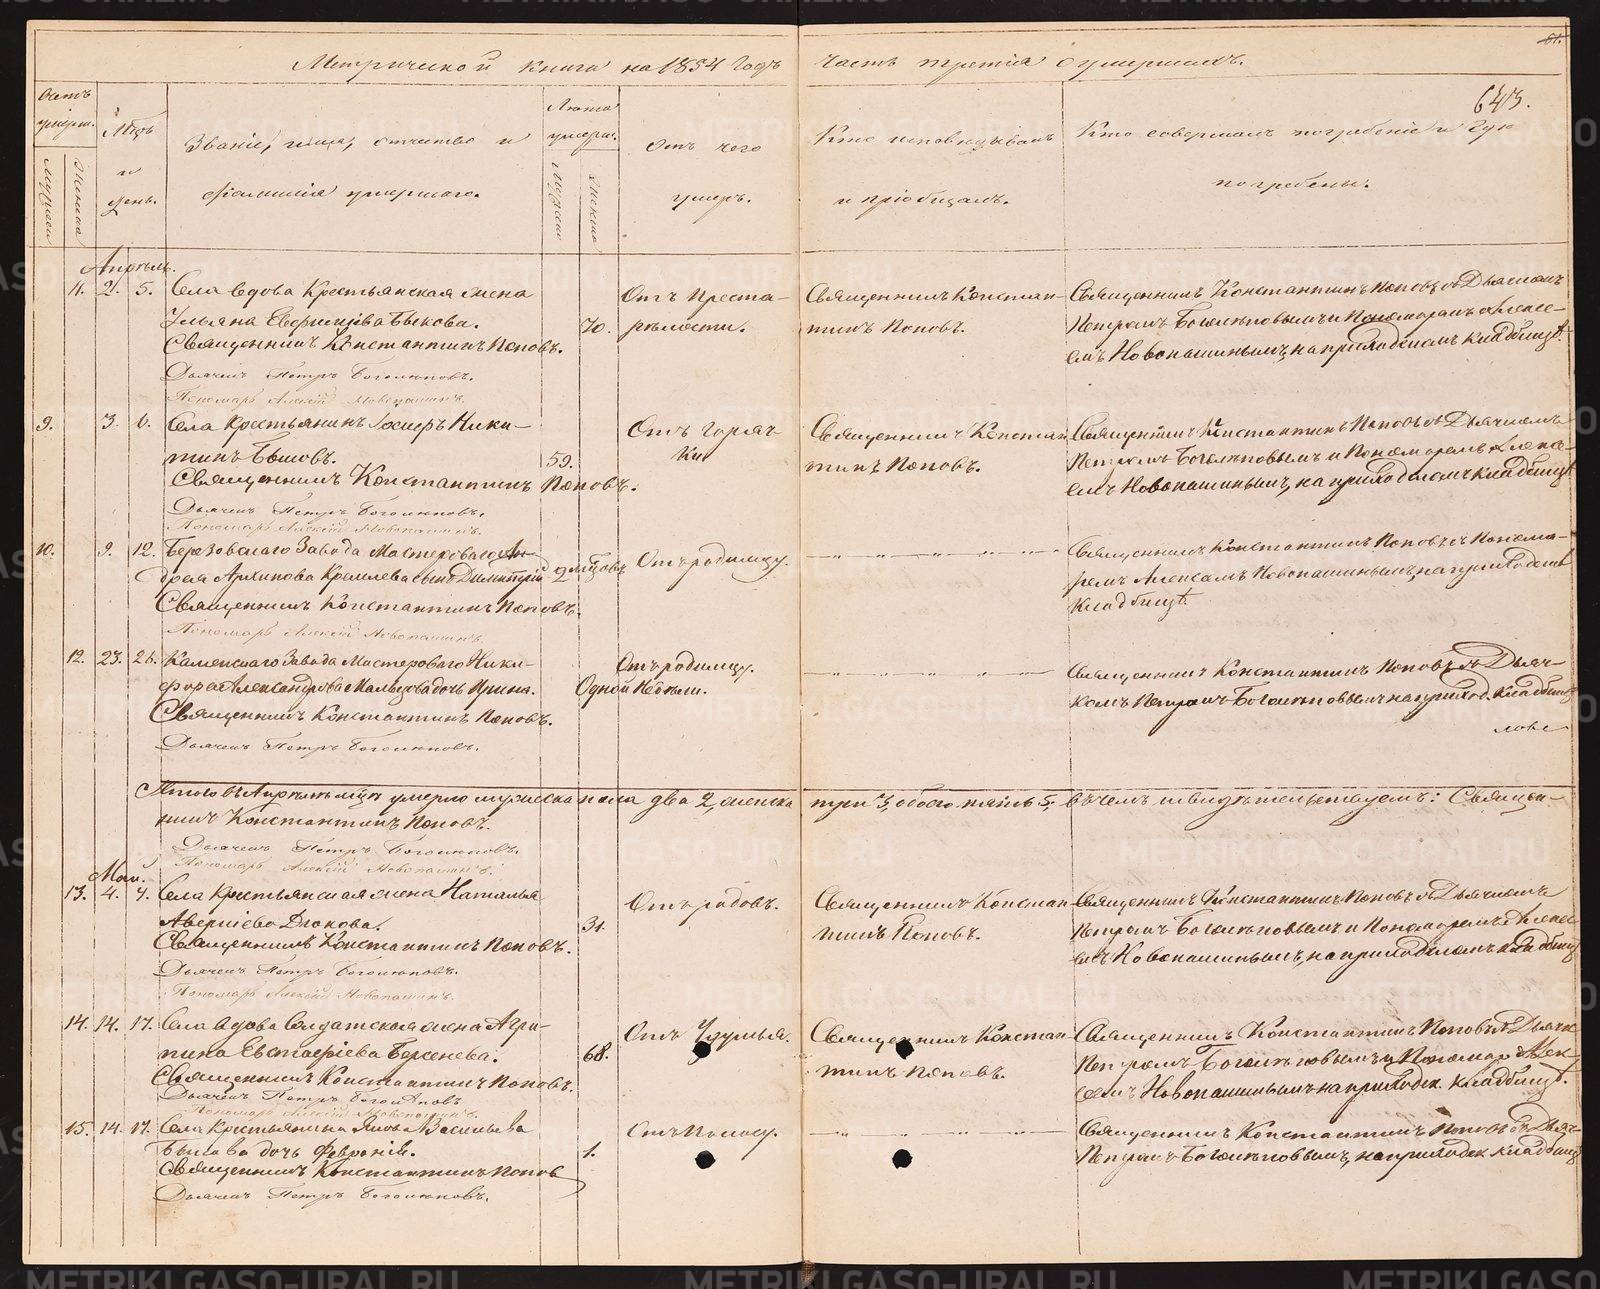 Метрической книги на 1854 Годъ часть третія о умершихъ.
643.
Счетъ умерш.
Мужеска
Женска
Мѣц.
и
день.
Званіе, имя, отчество и
фамилія умершаго.
Лѣта
умерш.
Мужеска
Женска
Отъ чего
умеръ.
Кто исповѣдывалъ
и пріобщалъ.
Кто совершалъ погребеніе и гдѣ
погребены.
Апрѣль.
11. 2. 5. Села вдова Крестьянская жена
Ульяна Быкова. 70.
Священникъ Константинъ Поповъ.
Дьячекъ Петръ Боголѣповъ.
Пономарь Алексій Новопашинъ.
Отъ преста-
рѣлости.
Священникъ Констан-
тинъ Поповъ.
Священникъ Константинъ Поповъ съ Дьячкомъ
Петромъ Боголѣповымъ и Пономаремъ Алексе-
емъ Новопашинымъ, на приходскомъ кладбищѣ.
9. 3. 6. Села Крестьянинъ Ники-
тинъ 59.
Священникъ Константинъ Поповъ.
Дьячекъ Петръ Боголѣповъ.
Пономарь Алексій Новопашинъ.
Отъ Горяч-
ки
Священникъ Констан-
тинъ Поповъ.
Священникъ Константинъ Поповъ съ Дьячкомъ
Петромъ Боголѣповымъ и Пономаремъ Алексе-
емъ Новопашинымъ, на приходскомъ кладбищѣ
10. 9. 12. Березовскаго Завода Мастероваго Ан-
дрея Архипова сынъ Димитрій 2 мѣсцовъ
Священникъ Константинъ Поповъ.
Пономарь Алексій Новопашинъ
Отъ родимцу.
Священникъ Константинъ Поповъ съ Понома-
ремъ Алексеемъ Новопашинымъ, на приходскомъ
Кладбищѣ.
12. 23. 26. Каменскаго Завода Мастероваго Ники-
фора Александрова Мальцова дочь Ирина.
Священникъ Константинъ Поповъ.
Дьячекъ Петръ Боголѣповъ.
Отъ родимцу.
Одной Недѣли.
Священникъ Константинъ Поповъ съ Дьяч-
комъ Петромъ Боголѣповымъ на приход. Кладбищѣ
Итого въ Апрѣлѣ мцѣ умерло мужеска пола два 2, женска три 3, обоего пять 5, въ чемъ и свидѣтельствуемъ: Священ-
никъ Константинъ Поповъ.
Дьячекъ Петръ Боголѣповъ.
Пономарь Алексій Новопашинъ.
Май.
13. 4. 7. Села Крестьянская жена Наталья
Аверкіева Дюкова. 31.
Священникъ Константинъ Поповъ.
Дьячекъ Петръ Боголѣповъ.
Пономарь Алексій Новопашинъ.
Отъ родовъ.
Священникъ Констан-
тинъ Поповъ.
Священникъ Константинъ Поповъ съ Дьячкомъ
Петромъ Боголѣповымъ и Пономаремъ Алексе-
емъ Новопашинымъ, на приходскомъ кладбищѣ
14. 14. 17. Села вдова Солдатская жена Агри-
пина Евстафіева Берсенева. 68.
Священникъ Константинъ Поповъ.
Дьячекъ Петръ Боголѣповъ
Пономарь Алексій Новопашинъ.
Отъ Удушья.
Священникъ Констан-
тинъ Поповъ.
Священникъ Константинъ Поповъ съ Дьячк
Петромъ Боголѣповымъ и Пономар Алек
сеемъ Новопашинымъ на приходск. кладбищѣ.
15. 14. 17. Села Крестьянина Якова Васильева
Быкова дочь Февронія. 1.
Священникъ Константинъ Поповъ
Дьячекъ Петръ Боголѣповъ.
Отъ Поносу.
Священникъ Константинъ Поповъ съ Дьяч.
Петромъ Боголѣповымъ, на приходск. кладбищѣ
METRIKI.GASO-URAL.RU